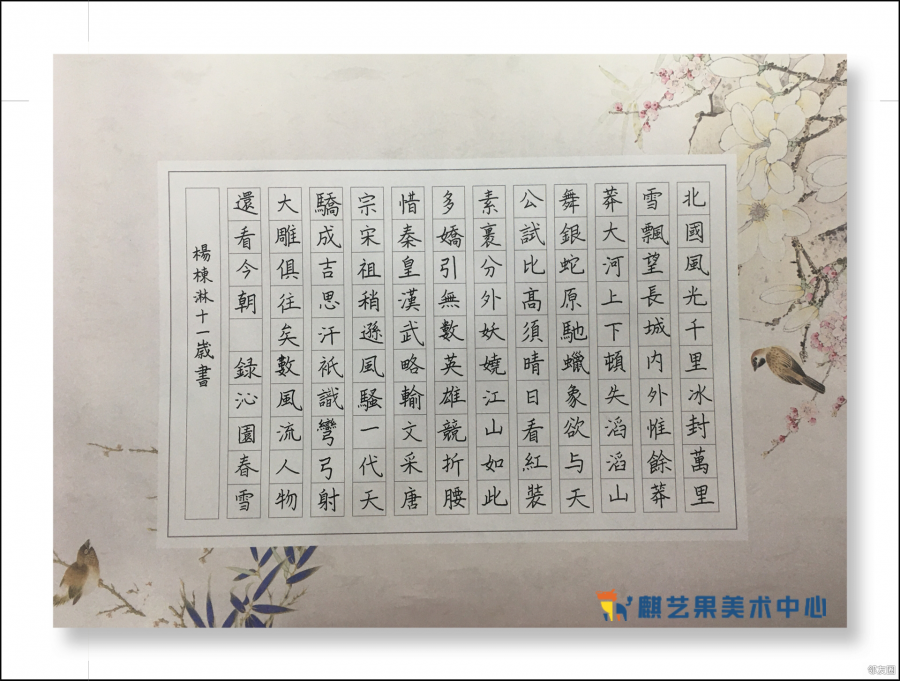 北國風光千里冰封萬里
雪飄望長城内外惟餘莽
莽大河上下頓失滔滔山
舞銀蛇原馳蠟象欲与天
公試比髙須晴日看紅裝
素裹分外妖嬈江山如此
多嬌引無數英雄競折腰
惜秦皇漢武略輸文采唐
宗宋祖稍遜風騷一代天
驕成吉思汗衹識彎弓射
大雕俱往矣數風流人物
還看今朝 録沁園春雪
楊棟淋十一歲書
麒艺果美术中心
邻友圈